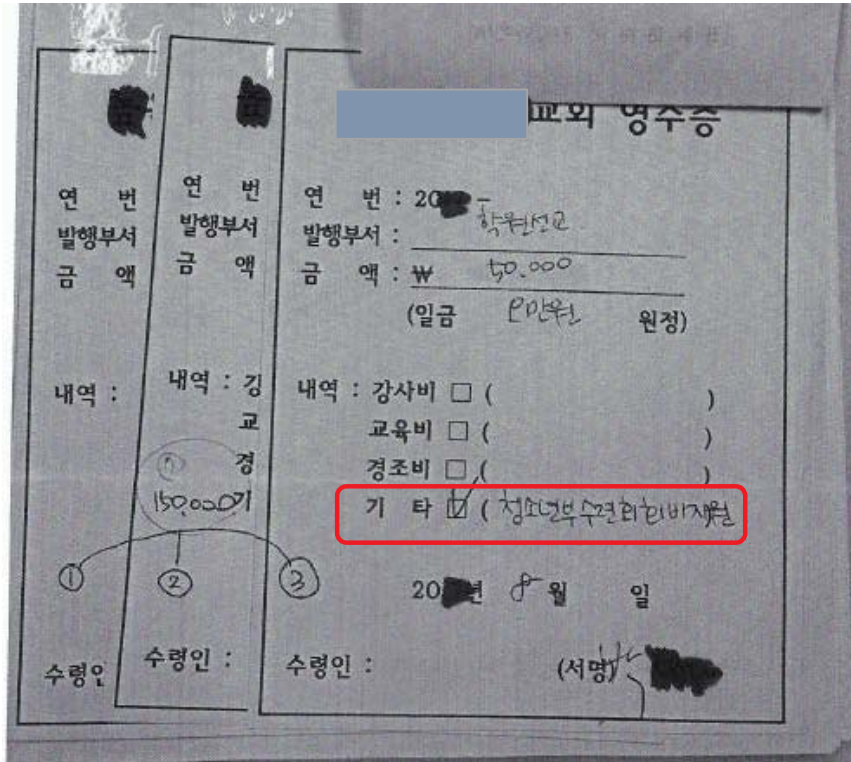 연 번
발행부서
금 액
내역 :
①
수령인
연 번
발행부서
금 액
내역 : 강
교
경
150,000 기
②
수령인 :
교회 영수증
연 번 : 20 -
발행부서 : 학원선교
금 액 : ₩ 50.000
(일금 오만원 원정)
내역 : 강사비 □ ( )
교육비 □ ( )
경조비 □ ( )
기 타 ☑ ( 청소년부수련회 회비지원 )
③
20 년 8 월 일
수령인 : (서명)